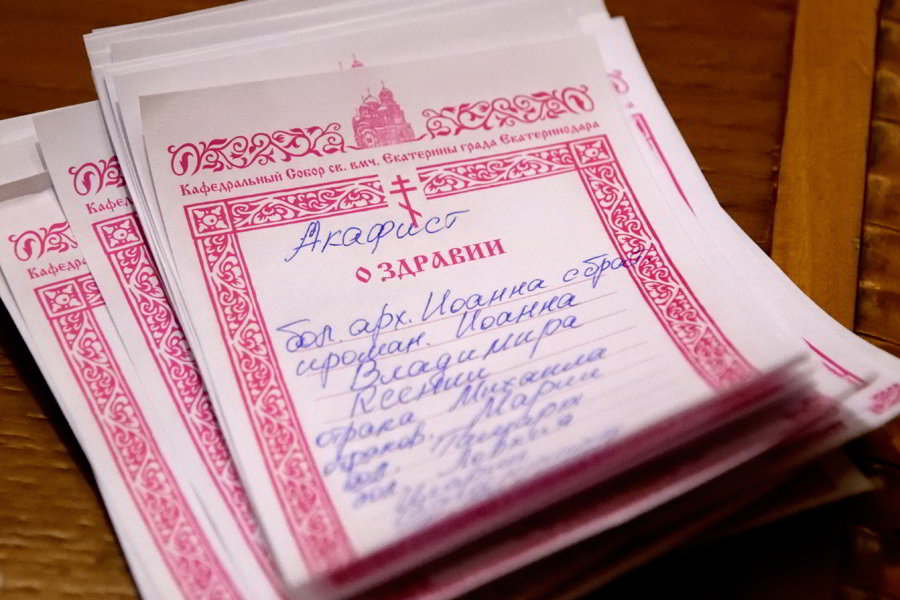 Кафедральный Собор св. вмч. Екатерины града Екатеринодара
Акафист
О ЗДРАВИИ
бол. арх. Иоанна с брат
иромон. Иоанна
Владимира
Ксении
отрока Михаила
Марии
бол. Тамара
бол.
Кафед
Кафедра